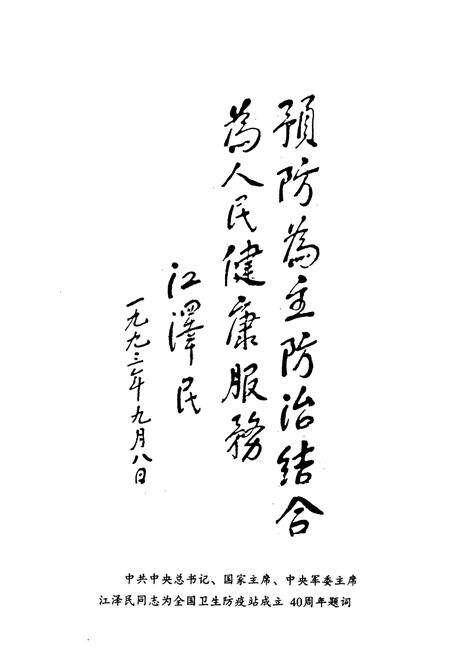 預防為主防治结合
為人民健康服務
江澤民
一九九三年九月八日
中共中央总书记、国家主席、中央军委主席
江泽民同志为全国卫生防疫站成立 40周年题词